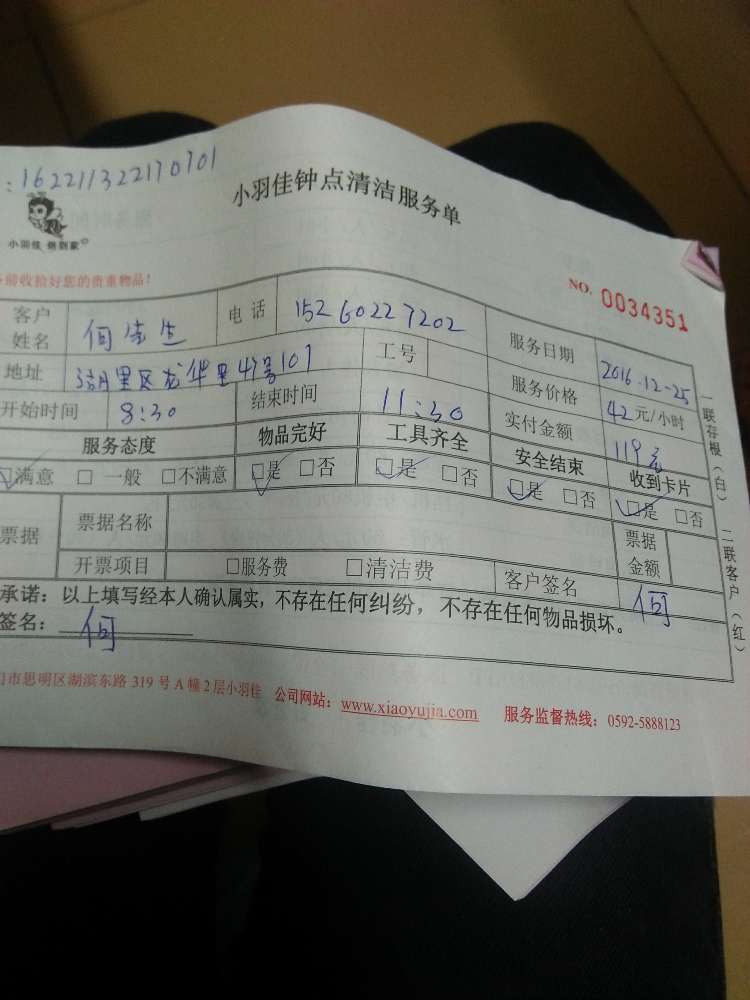 : 162211322170701
小羽佳钟点清洁服务单
小羽佳 做到家
前收捡好您的贵重物品!
NO. 0034351
客户姓名 何先生 电话 15260227202 服务日期 2016.12-25
地址 湖里区龙华里47号107 工号 服务价格 42元/小时
开始时间 8:30 结束时间 11:30 实付金额 119元
服务态度 物品完好 工具齐全 安全结束 收到卡片
☑满意 □ 一般 □不满意 ☑是 □否 ☑是 □否 ☑是 □否 ☑是 □否
票据 票据名称 票据金额
开票项目 □服务费 □清洁费 客户签名 何
承诺：以上填写经本人确认属实，不存在任何纠纷，不存在任何物品损坏。
签名： 何
门市思明区湖滨东路 319 号 A 幢 2 层小羽佳 公司网站：www.xiaoyujia.com 服务监督热线：0592-5888123
一联存根（白） 二联客户（红）